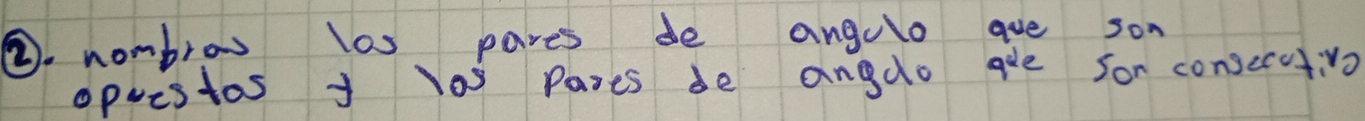 2. nombras los pares de angulo que son
opuestos y los Pares de angulo que son consecutivo